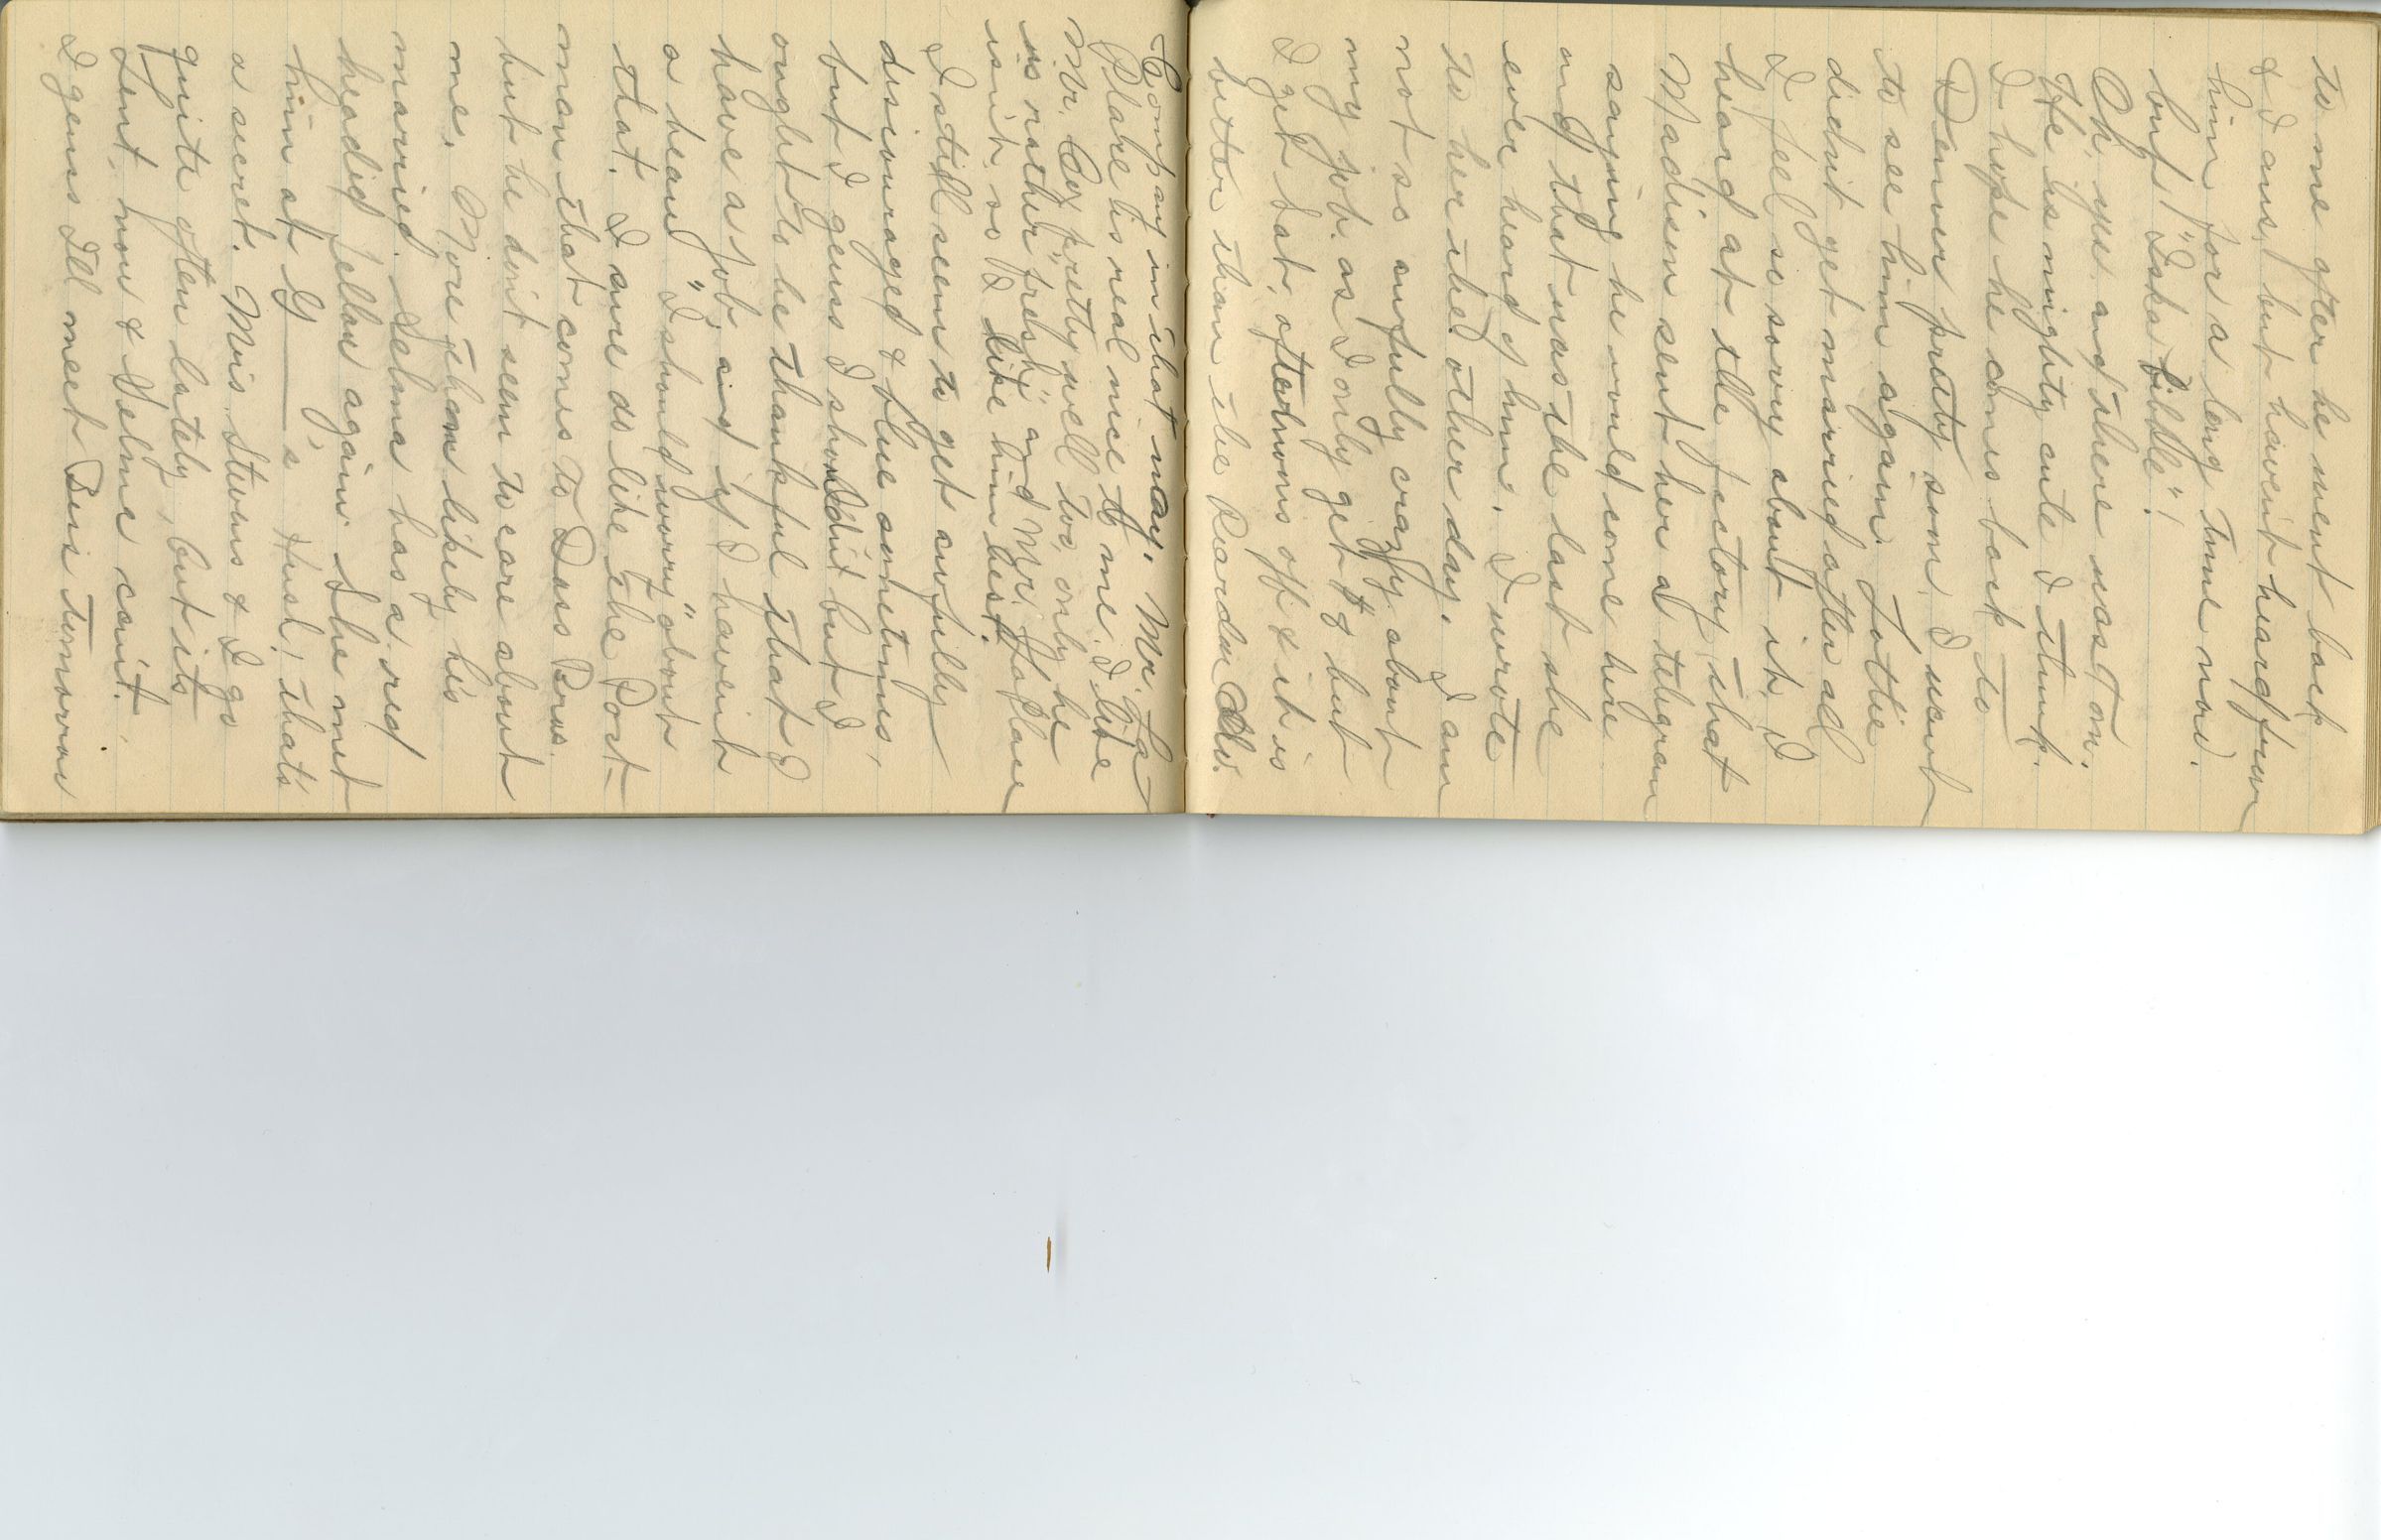 to me after he went back
& I ans, but havent heard from
him for a long time now.
but! "Iska Bibble"!
Oh, yes and there was Tom.
He is mighty cute I think.
I hope he comes back to
Denver pretty soon, I want
to see him again. Lottie
didn't get married after all
I feel so sorry about it, I
heard at the factory that
Madison sent her a telegram
saying he would come here
and that was the last she
ever heard of him. I wrote
to her the other day. I am
not so awfully crazy about
my job. as I only get $8 but
I get Sat. afternoons off & it is
better than the Reardin Clo.
Company in that way. Mr. La
Plake is real nice to me. I like
Mr. Coy pretty well too, only he
is rather "fresh" and Mr. Haflane
isn't so I like him best.
I still seem to get awfully
discouraged & blue sometimes,
but I gess I shouldn't but I
ought to be thankful that I
have a job, and if I havent
a beau "I should worry" about
that. I sure do like the Post-
man that comes to Dass Bros.
but he don't seem to care about
me. More than likely his
married. Selma has a red
headed fellow again. She met
him at G____'s Hush! that's
a secret. Mis Stevens & I go
quite often lately, but its
Lent, now & Selma can't.
I gess Ill meet Bess tomorrow